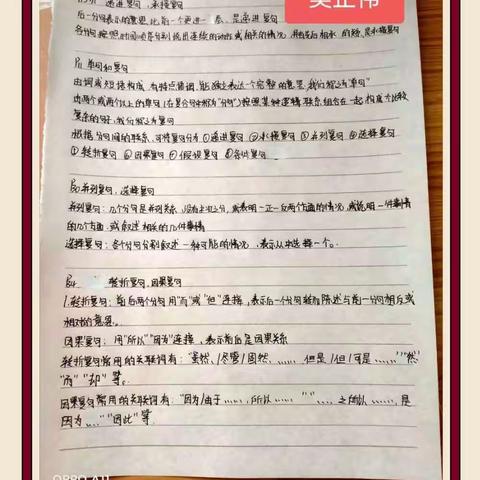 吴正伟
递进复句,承接复句
后一分句表示的意思比前一个更进一 是递进复句
各分句按照时间顺序分别说出连续的动作或相关的情况 并由先后相承 的 是承接复句
P71 单句和复句
由词或短语构成,有特点语调,能独立表达一个完整的意思,我们称之为"单句"
由两个或两个以上的单句(在复合中称为"分句")按照某种逻辑联系组合在一起,构成个比较
复杂的句子,我们称之为复句
根据分句间的联系,可将复句分为①递进复句 ②承接复句 ③并列复句 ④选择复句
⑤转折复句 ⑥因果复句 ⑦假设复句 ⑧条件复句
并列复句,选择复句
并列复句:几个分句是并列关系,没有主次之分,或表明一正一反两个方面的情况,或说明一件事情
的几个方面,或叙述相关的几件事情
选择复句:各个分句分别叙述一种可能的情况,表示从中选择一个。
转折复句,因果复句
1.转折复句:前后两个分句用"而"或"但"连接,表示后一个分句转而陈述与前一分句相反或
相对的意思。
因果复句:用"所以""因为"连接,表示前后是因果关系
转折复句常用的关联词有:"虽然、/尽管/固然、……,但是/但/可是……""然"
"而""却"等。
因果复句常用的关联词有:"因为/由于……,所以……""……之所以……,是
因为……""因此"等
OPPO A11